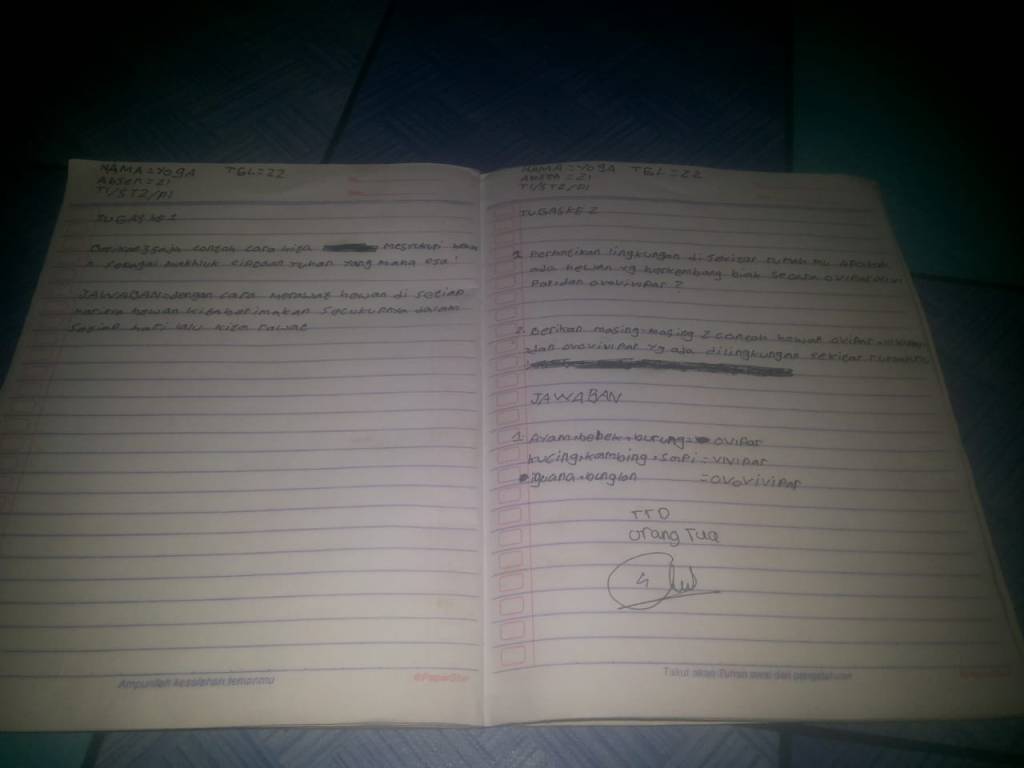 NAMA = YOGA TGL = 22
Absen = 21
T1/ST2/P1
TUGAS KE 1
Berikan saja contoh cara kita mesyukuri
sebagai makhluk ciptaan tuhan yang maha esa!
JAWABAN = dengan cara merawat hewan di setiap
harinya hewan kita beri makan secukupnya dalam
setiap hari lalu kita rawat
Ampunilah kesalahan temanmu
PaperStar
NAMA = YOGA TGL = 22
Absen = 21
T1/ST2/P1
TUGAS KE 2
1. Perhatikan lingkungan di sekitar rumah mu apakah
ada hewan yg berkembang biak secara ovipar
Par dan ovovivipar?
2. Berikan masing-masing 2 contoh hewan ovipar, vivipar
dan ovovivipar yg ada dilingkungan sekitar rumahmu
JAWABAN
1. Ayam, bebek, burung = ovipar
kucing, kambing, sapi = vivipar
iguana, bunglon = ovovivipar
TTD
orang Tua
Takut akan Tuhan awal dari pengetahuan